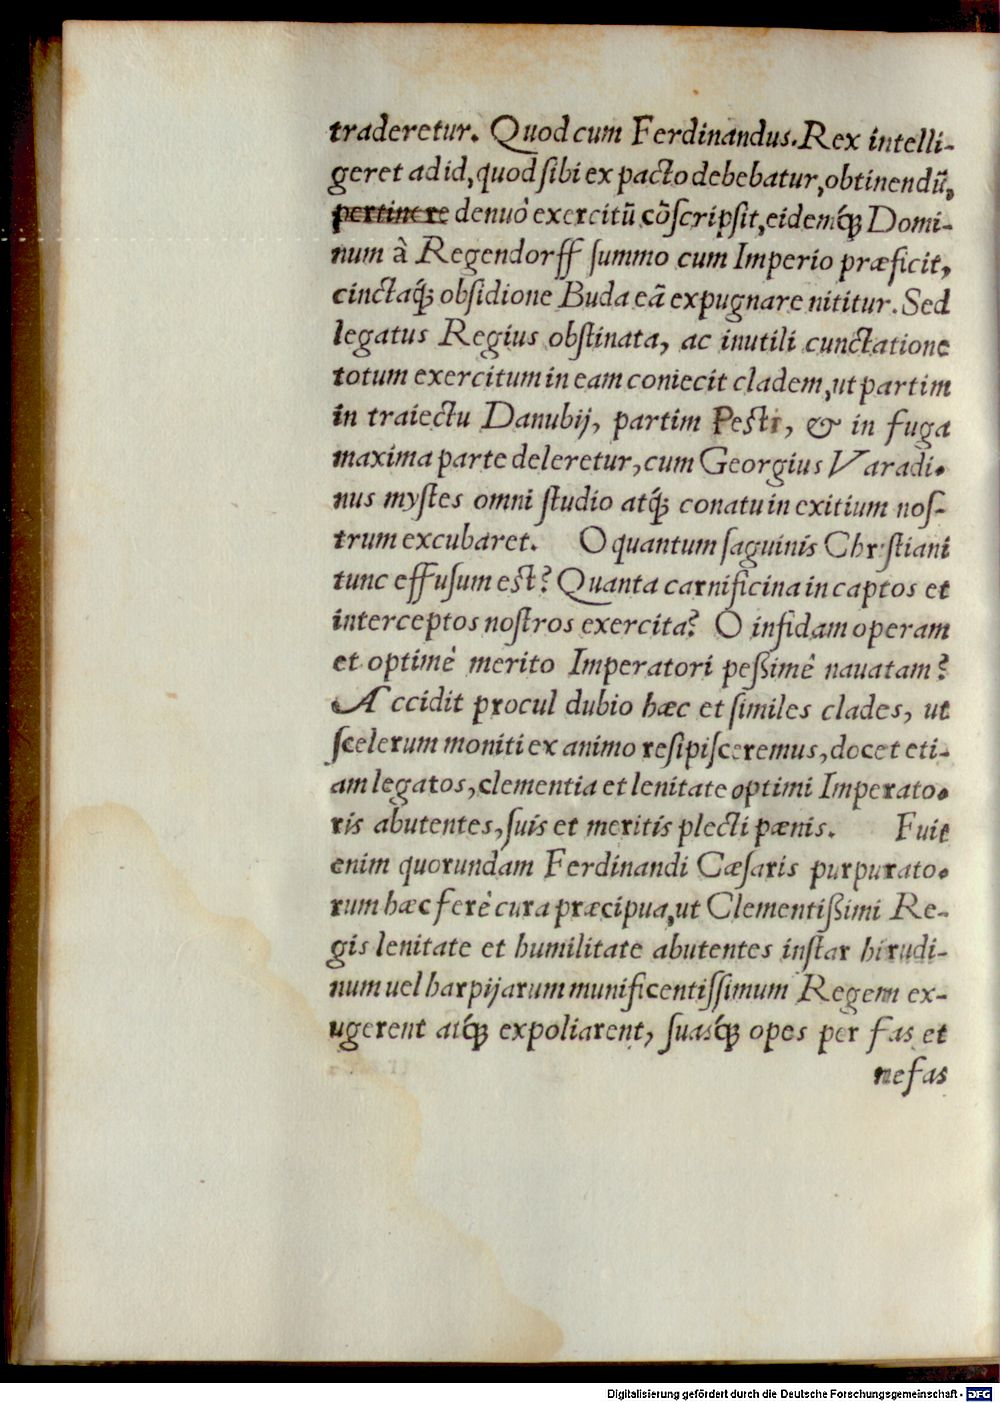 traderetur. Quod cum Ferdinandus. Rex intelli-
geret ad id, quod sibi ex pacto debebatur, obtinendũ,
pertinere denuò exercitũ cõscripsit, eidemq́ꝫ Domi-
num à Regendorff summo cum Imperio præficit,
cinctaq́ꝫ obsidione Buda eã expugnare nititur. Sed
legatus Regius obstinata, ac inutili cunctatione
totum exercitum in eam coniecit cladem, ut partim
in traiectu Danubij, partim Pesti, & in fuga
maxima parte deleretur, cum Georgius Varadi-
nus mystes omni studio atq́ꝫ conatu in exitium nos-
trum excubaret. O quantum saguinis Christiani
tunc effusum est? Quanta carnificina in captos et
interceptos nostros exercita? O infidam operam
et optimè merito Imperatori peßimè nauatam?
Accidit procul dubio hæc et similes clades, ut
scelerum moniti ex animo resipisceremus, docet eti-
am legatos, clementia et lenitate optimi Imperato-
ris abutentes, suis et meritis plecti pænis. Fuit
enim quorundam Ferdinandi Cæsaris purpurato-
rum hæc ferè cura præcipua, ut Clementißimi Re-
gis lenitate et humilitate abutentes instar hirudi-
num uel harpijarum munificentissimum Regem ex-
ugerent atq́ꝫ expoliarent, suasq́ꝫ opes per fas et
nefas
Digitalisierung gefördert durch die Deutsche Forschungsgemeinschaft - DFG